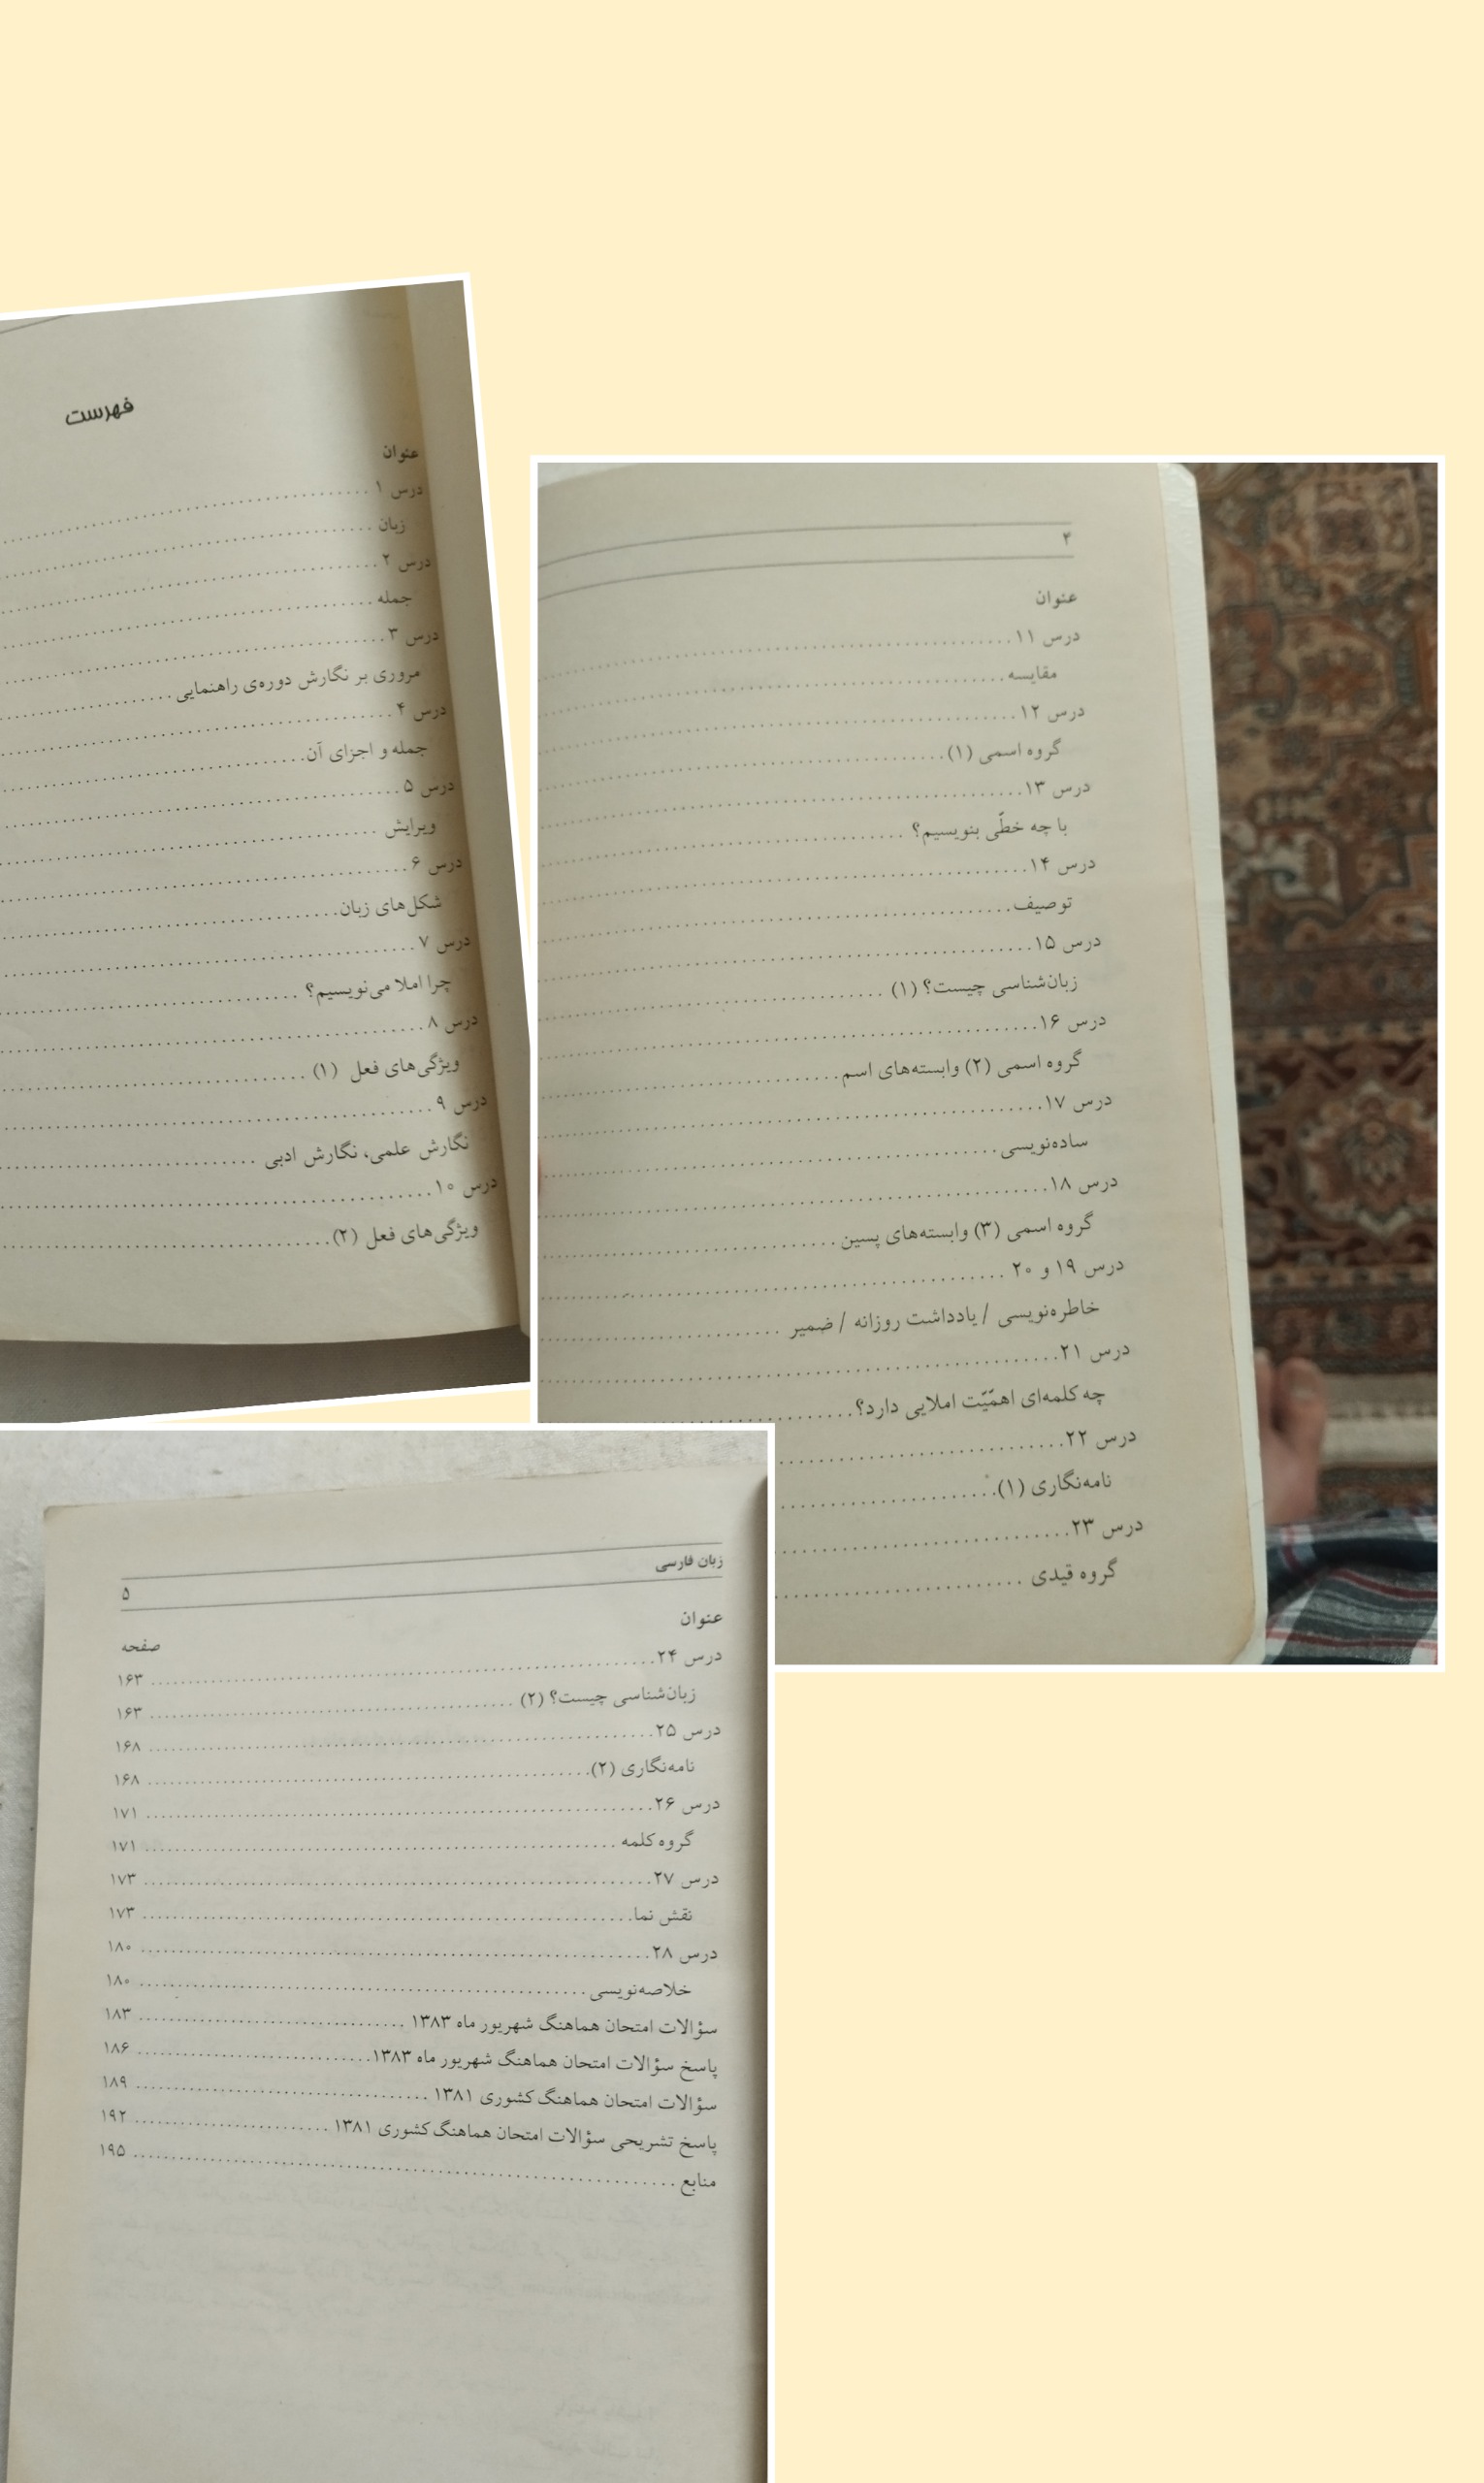 فهرست
عنوان
درس ۱
زبان
درس ۲
جمله
درس ۳
مروری بر نگارش دوره‌ی راهنمایی
درس ۴
جمله و اجزای آن
درس ۵
ویرایش
درس ۶
شکل‌های زبان
درس ۷
چرا املا می‌نویسیم؟
درس ۸
ویژگی‌های فعل (۱)
درس ۹
نگارش علمی، نگارش ادبی
درس ۱۰
ویژگی‌های فعل (۲)
۴
عنوان
درس ۱۱
مقایسه
درس ۱۲
گروه اسمی (۱)
درس ۱۳
با چه خطّی بنویسیم؟
درس ۱۴
توصیف
درس ۱۵
زبان‌شناسی چیست؟ (۱)
درس ۱۶
گروه اسمی (۲) وابسته‌های اسم
درس ۱۷
ساده‌نویسی
درس ۱۸
گروه اسمی (۳) وابسته‌های پسین
درس ۱۹ و ۲۰
خاطره‌نویسی / یادداشت روزانه / ضمیر
درس ۲۱
چه کلمه‌ای اهمّیّت املایی دارد؟
درس ۲۲
نامه‌نگاری (۱)
درس ۲۳
گروه قیدی
زبان فارسی ۵
عنوان صفحه
درس ۲۴ ۱۶۳
زبان‌شناسی چیست؟ (۲) ۱۶۳
درس ۲۵ ۱۶۸
نامه‌نگاری (۲) ۱۶۸
درس ۲۶ ۱۷۱
گروه کلمه ۱۷۱
درس ۲۷ ۱۷۳
نقش نما ۱۷۳
درس ۲۸ ۱۸۰
خلاصه‌نویسی ۱۸۰
سؤالات امتحان هماهنگ شهریور ماه ۱۳۸۳ ۱۸۳
پاسخ سؤالات امتحان هماهنگ شهریور ماه ۱۳۸۳ ۱۸۶
سؤالات امتحان هماهنگ کشوری ۱۳۸۱ ۱۸۹
پاسخ تشریحی سؤالات امتحان هماهنگ کشوری ۱۳۸۱ ۱۹۲
منابع ۱۹۵